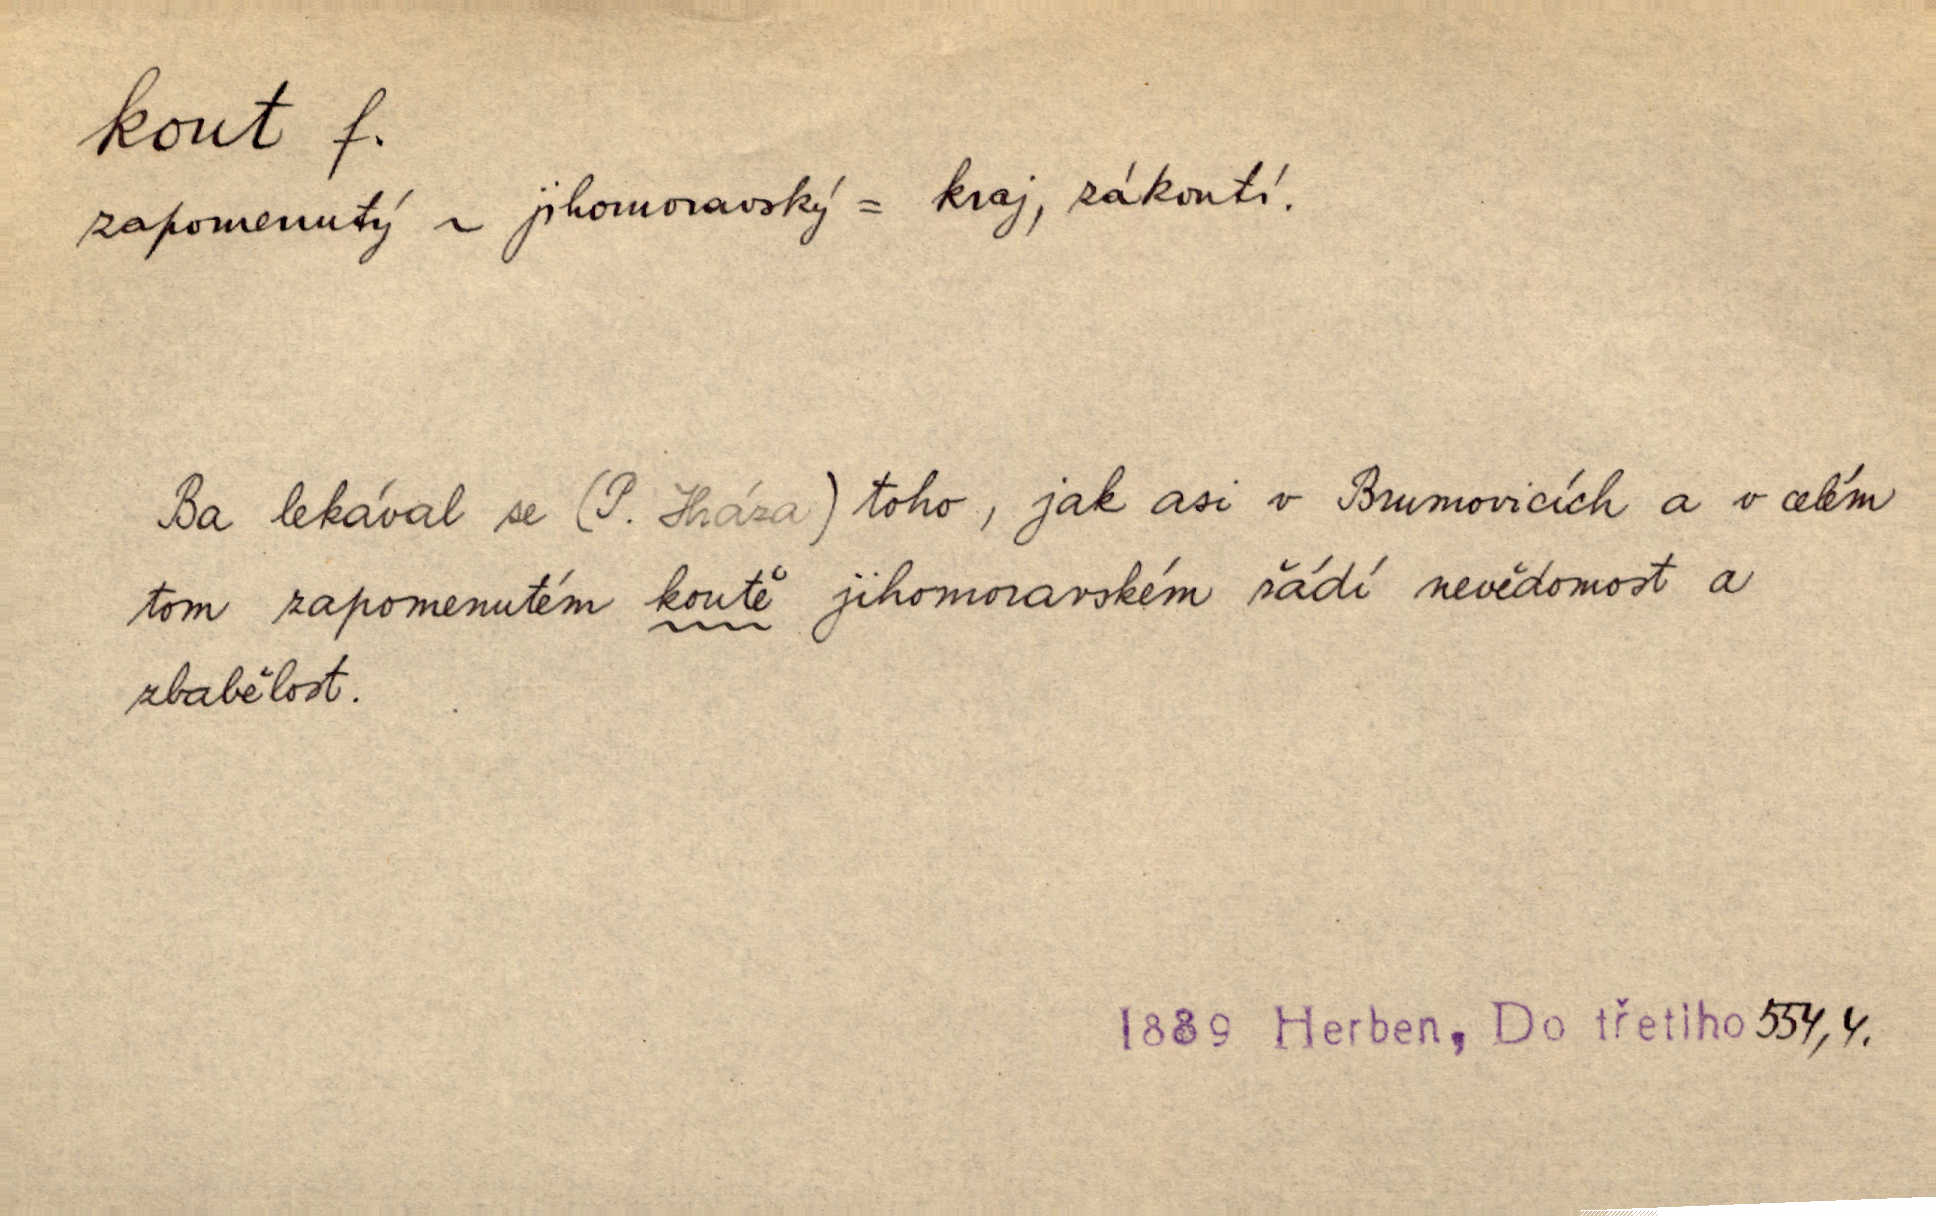 kout f.
zapomenutý ~ jihomoravský = kraj, zákoutí.
Ba lekával se (P. Hráza) toho, jak asi v Brumovicích a v celém
tom zapomenutém koutě jihomoravském řádí nevědomost a
zbabělost.
1889 Herben, Do třetího 554, 4.